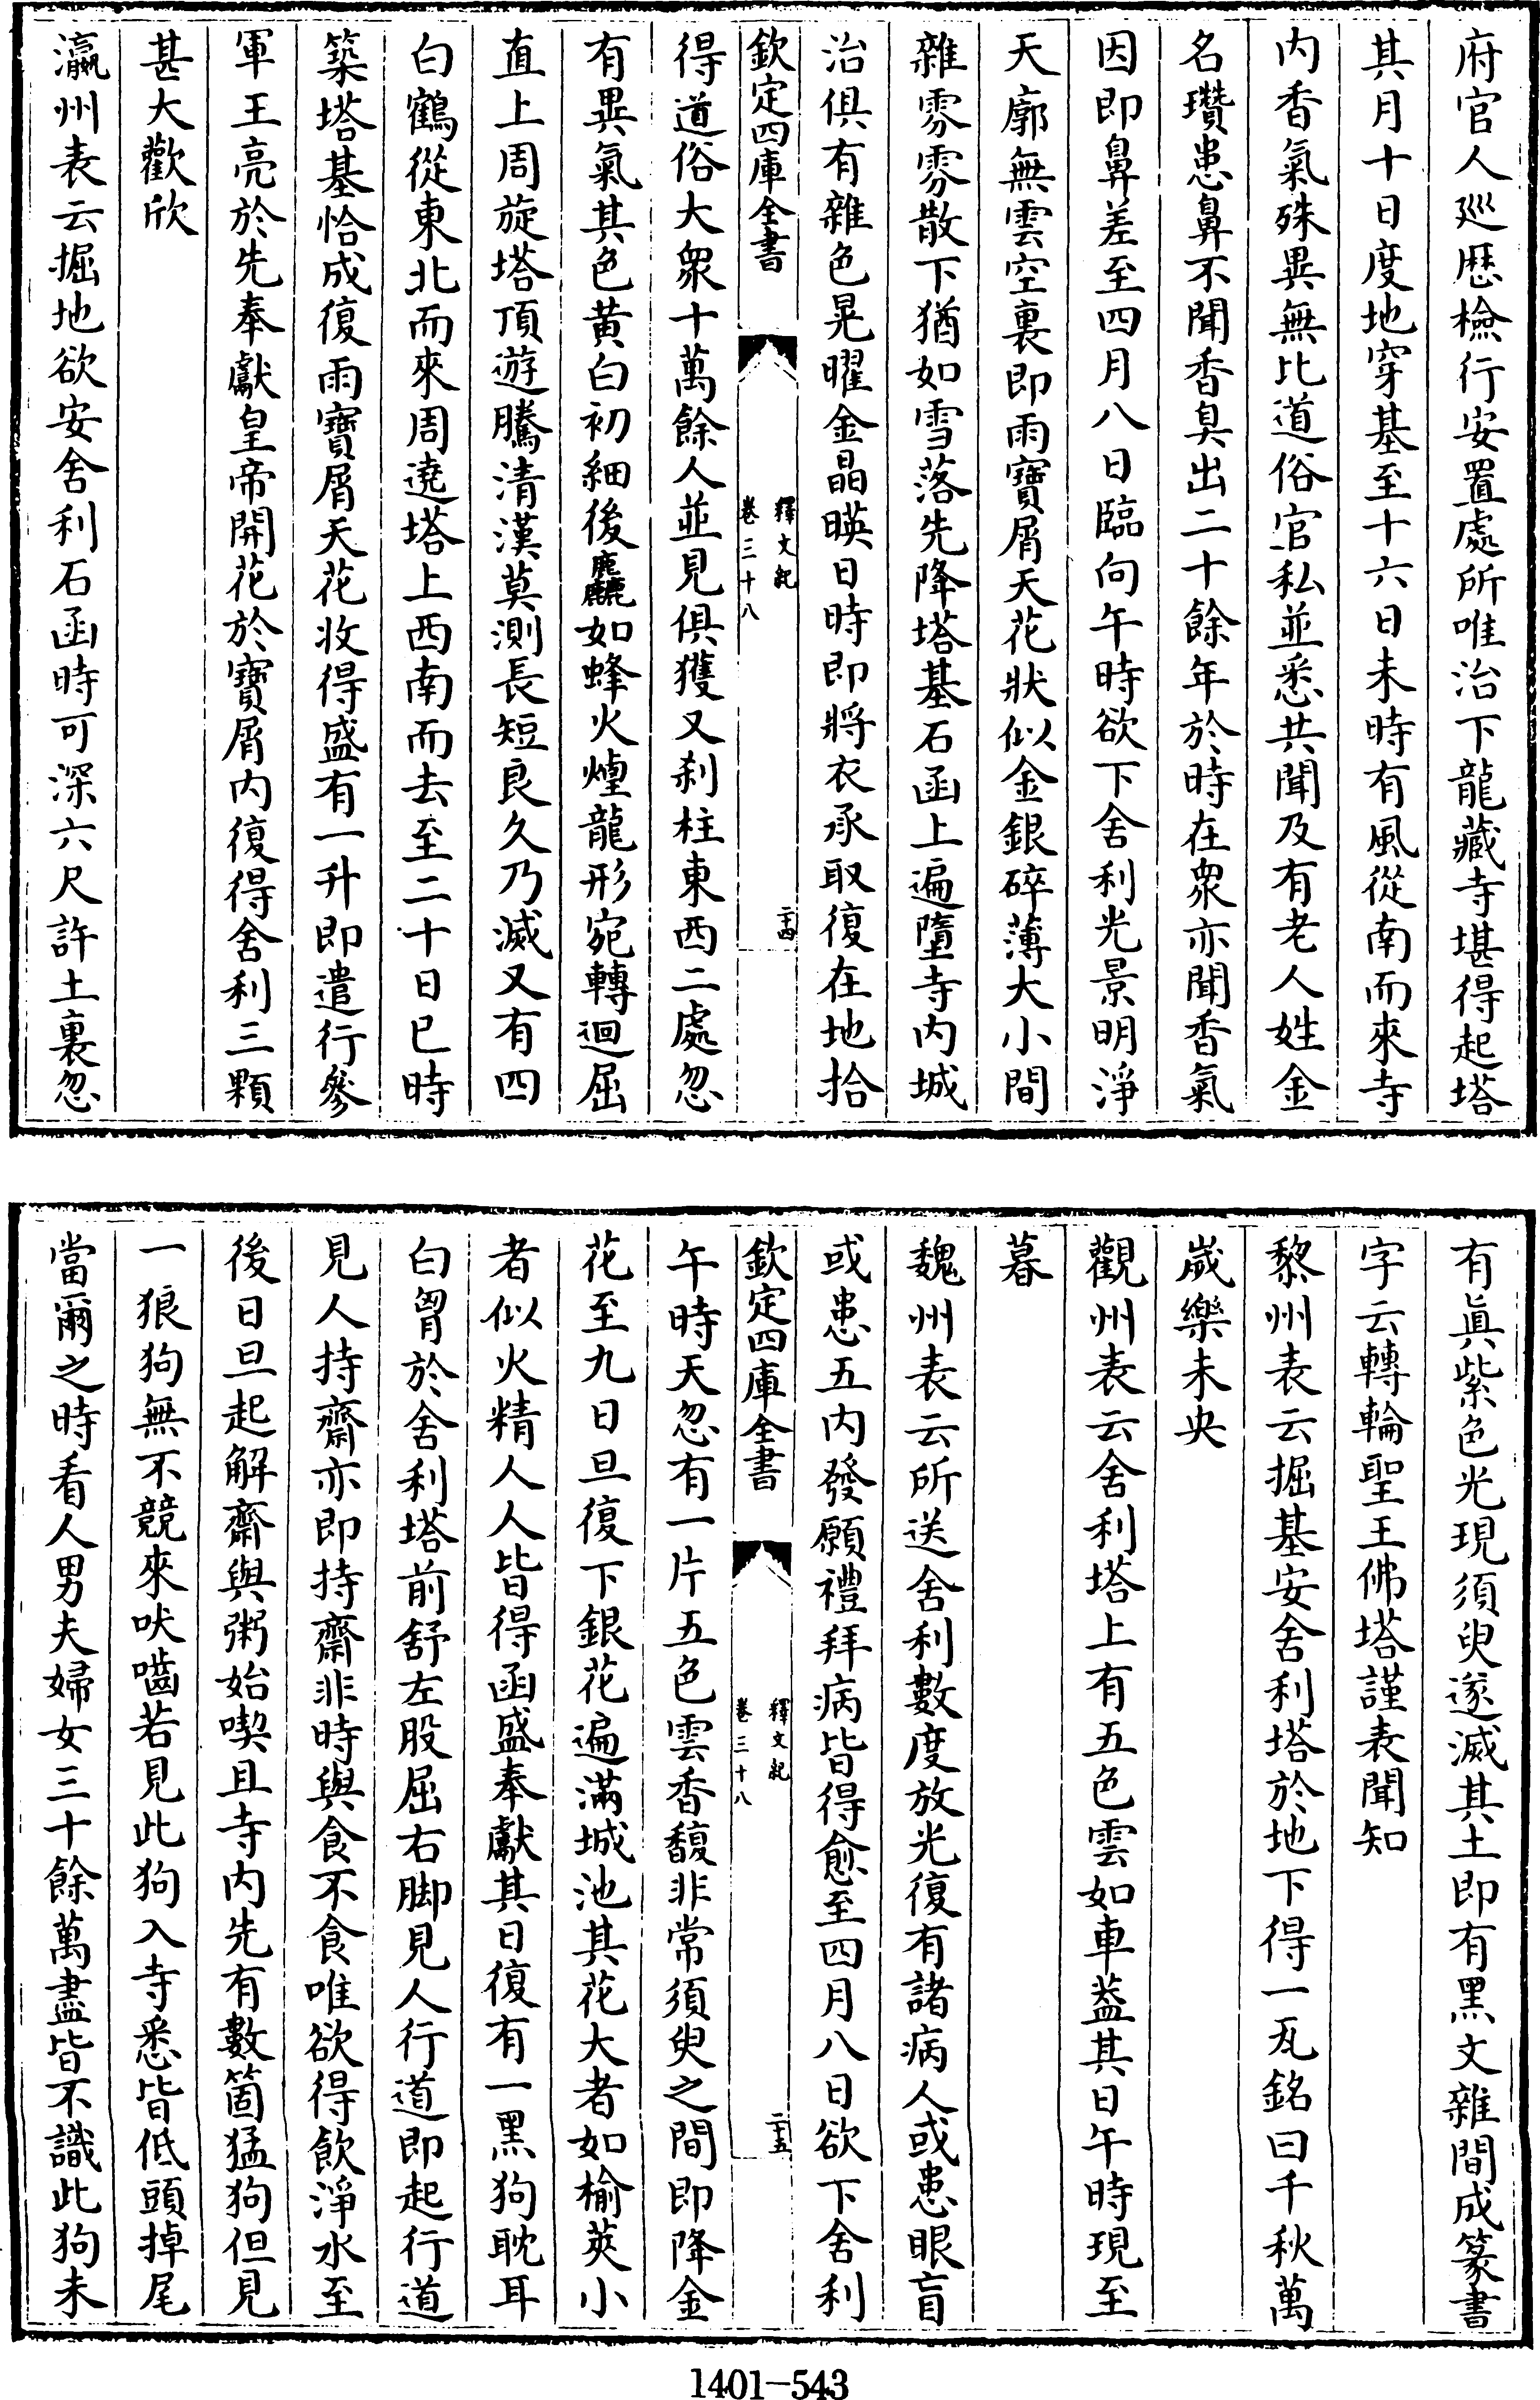 府官人廵歴檢行安置處所唯治下龍藏寺堪得起塔
其月十日度地穿基至十六日未時有風從南而來寺
内香氣殊異無比道俗官私並悉共聞及有老人姓金
名瓚患鼻不聞香臭出二十餘年於時在衆亦聞香氣
因即鼻差至四月八日臨向午時欲下舍利光景明淨
天廓無雲空裏即雨寶屑天花狀似金銀碎薄大小間
雜雰雰散下猶如雪落先降塔基石函上遍墮寺内城
治俱有雜色晃曜金晶暎日時即將衣承取復在地拾
欽定四庫全書
釋文紀
卷三十八
二十四
得道俗大衆十萬餘人並見俱獲又刹柱東西二處忽
有異氣其色黄白初細後麤如蜂火煙龍形宛轉迴屈
直上周旋塔頂遊騰清漢莫測長短良久乃滅又有四
白鶴從東北而來周遶塔上西南而去至二十日巳時
築塔基恰成復雨寶屑天花收得盛有一升即遣行參
軍王亮於先奉獻皇帝開花於寶屑内復得舍利三顆
甚大歡欣
瀛州表云掘地欲安舍利石函時可深六尺許土裏忽
有眞紫色光現須臾遂滅其土即有黑文雜間成篆書
字云轉輪聖王佛塔謹表聞知
黎州表云掘基安舍利塔於地下得一瓦銘曰千秋萬
歲樂未央
觀州表云舍利塔上有五色雲如車葢其日午時現至
暮
魏州表云所送舍利數度放光復有諸病人或患眼盲
或患五内發願禮拜病皆得愈至四月八日欲下舍利
欽定四庫全書
釋文紀
卷三十八
二十五
午時天忽有一片五色雲香馥非常須臾之間即降金
花至九日旦復下銀花遍滿城池其花大者如榆莢小
者似火精人人皆得函盛奉獻其日復有一黑狗耽耳
白胷於舍利塔前舒左股屈右脚見人行道即起行道
見人持齋亦即持齋非時與食不食唯欲得飲淨水至
後日旦起解齋與粥始喫且寺内先有數箇猛狗但見
一狼狗無不競來吠嚙若見此狗入寺悉皆低頭掉尾
當爾之時看人男夫婦女三十餘萬盡皆不識此狗未
1401-543